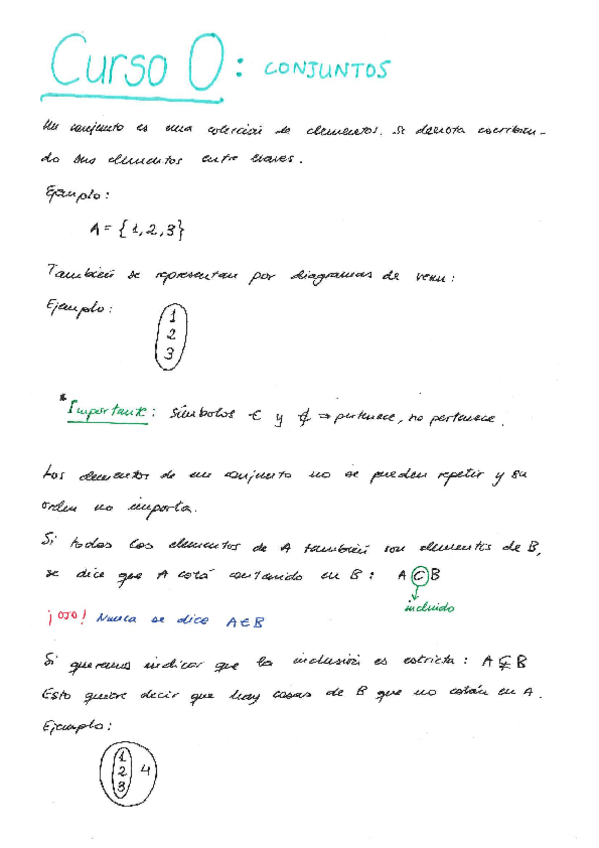 Curso 0: CONJUNTOS
Un conjunto es una colección de elementos. Se denota escribien-
do sus elementos entre llaves.
Ejemplo:
A = {1, 2, 3}
También se representan por diagramas de venn:
Ejemplo:
1
2
3
* Importante: Símbolos ∈ y ∉ ⇒ pertenece, no pertenece.
Los elementos de un conjunto no se pueden repetir y su
orden no importa.
Si todos los elementos de A también son elementos de B,
se dice que A está contenido en B: A ⊂ B
incluido
¡OJO! Nunca se dice A ∈ B
Si queremos indicar que la inclusión es estricta: A ⊊ B
Esto quiere decir que hay cosas de B que no están en A.
Ejemplo:
1
2 4
3